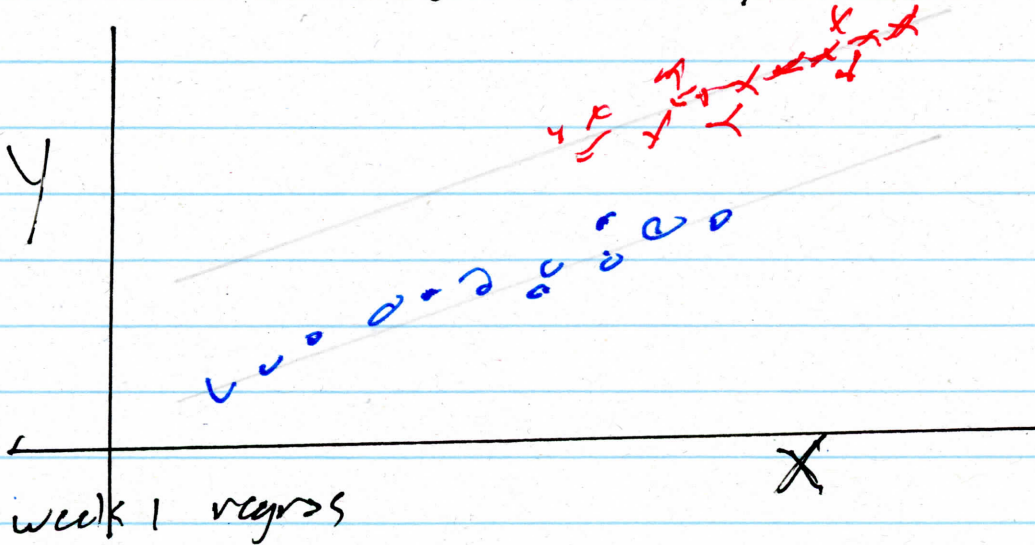 Y
X
week 1 regros